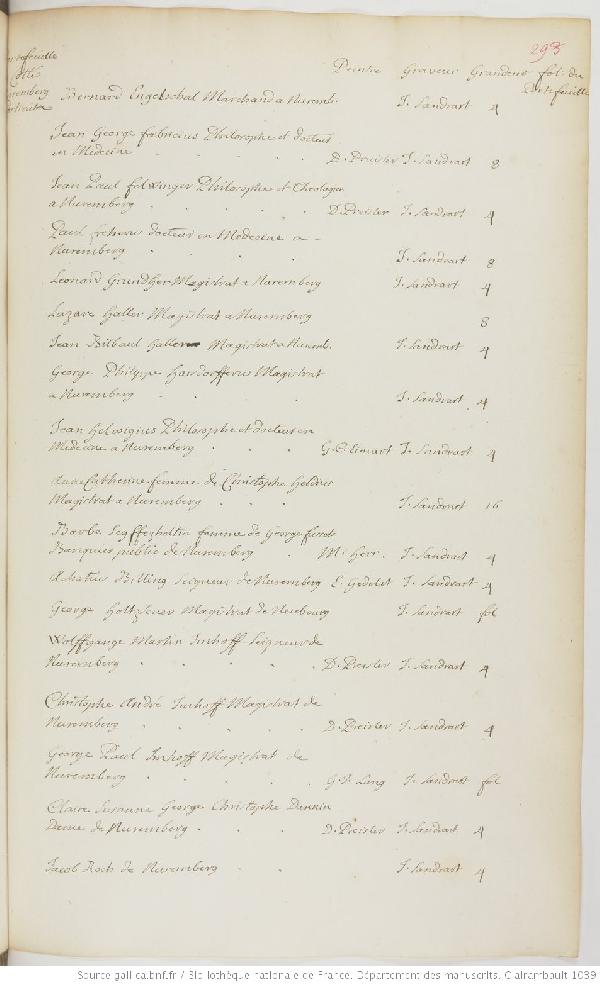 293
Peintre Graveur Grandeur fol. du
Portefeuille
Bernard Engelschal Marchand a Nuremb. J. Sandrart 4
Jean George fabricius Philosophe et docteur
en Medecine D. Preisler J. Sandrart 8
Jean Paul felwinger Philosophe et Theologien
a Nuremberg D. Preisler J. Sandrart 4
Paul docteur en Medecine a
Nuremberg J. Sandrart 8
Leonard Grundher Magistrat a Nuremberg J. Sandrart 4
Lazare Haller Magistrat a Nuremberg 8
Jean Haller Magistrat a Nuremb. J. Sandrart 4
George Philippe Harsdorfferus Magistrat
a Nuremberg J. Sandrart 4
Jean Helwigius Philosophe et docteur en
Medecine a Nuremberg G. C. Eimart J. Sandrart 4
Catherine femme de Christophe
Magistrat a Nuremberg J. Sandrart 16
Barbe femme de George
Banquier public de Nuremberg Mr. Herr. J. Sandrart 4
Achatius Seigneur de Nuremberg E. Gedelet J. Sandrart 4
George Magistrat de J. Sandrart fol
Wolffgange Martin Imhoff Seigneur de
Nuremberg D. Preisler J. Sandrart 4
Christophe André Imhoff Magistrat de
Nuremberg D. Preisler J. Sandrart 4
George Paul Imhoff Magistrat de
Nuremberg G. J. Lang J. Sandrart fol
Claire Susanne George Christophe
Dame de Nuremberg D. Preisler J. Sandrart 4
Jacob Roch de Nuremberg J. Sandrart 4
Source gallica.bnf.fr / Bibliothèque nationale de France. Département des manuscrits. Clairambault 1039